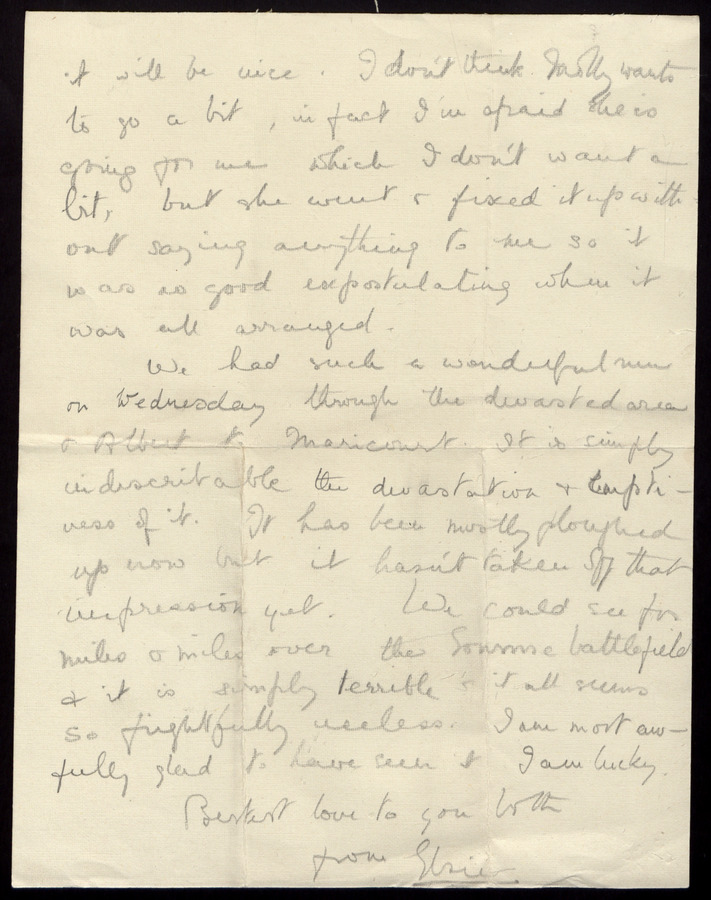 it will be nice. I don't think Molly wants
to go a bit, in fact I'm afraid she is
going for me which I don't want a
bit, but she went & fixed it up with-
out saying anything to me so it
was no good expostulating when it
was all arranged.
We had such a wonderful run
on Wednesday through the devasted area
& Albert to Maricourt. It is simply
indescribable the devastation & empti-
ness of it. It has been mostly ploughed
up now but it hasn't taken off that
impression yet. We could see for
miles & miles over the Somme battlefield
& it is simply terrible & it all seems
so frightfully useless. I am most aw-
fully glad to have seen it I am lucky.
Bestest love to you both
from Elsie.